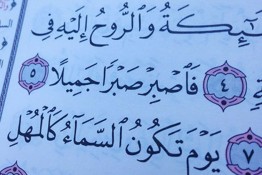 وَٱلرُّوحُ إِلَيْهِ فِى
٤ فَٱصْبِرْ صَبْرًا جَمِيلًا ٥
٧ يَوْمَ تَكُونُ ٱلسَّمَآءُ كَٱلْمُهْلِ